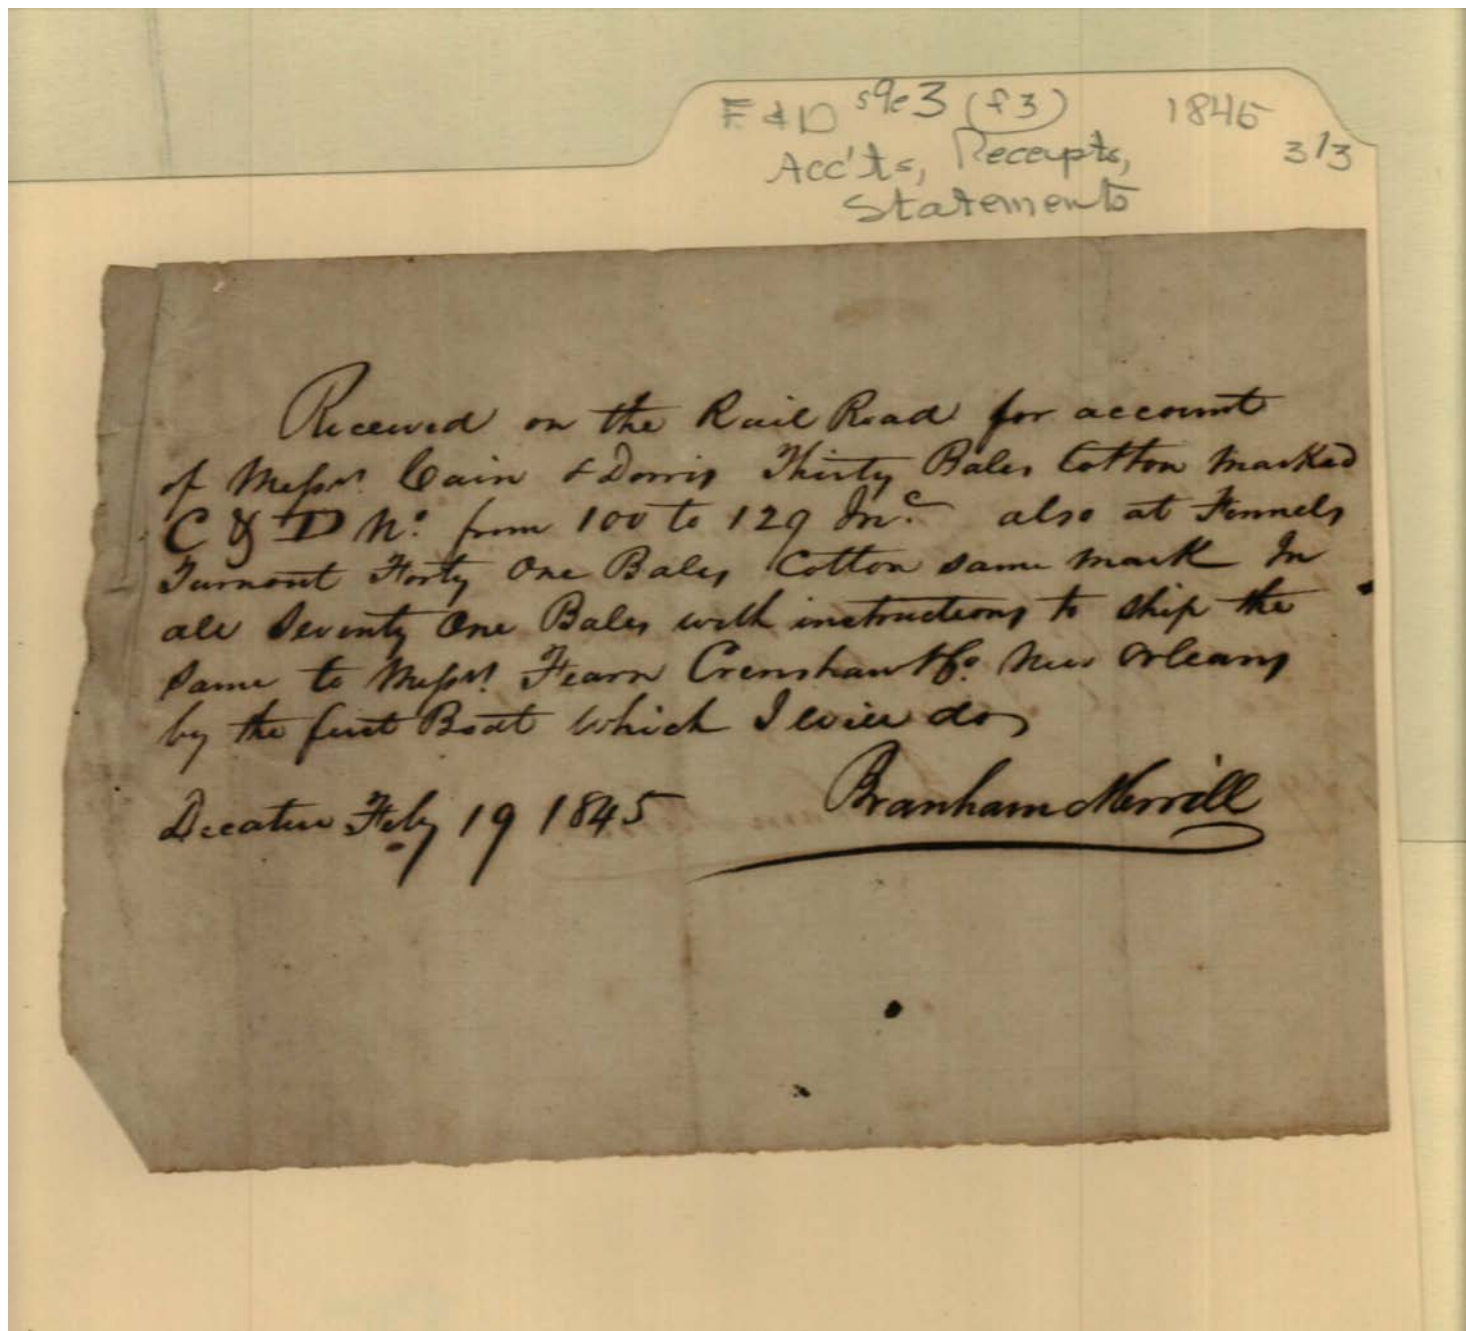 F & D s9e3 (f3) 1845
3/3
Acc'ts, Receipts,
Statements
Received on the Rail Road for account
of Messrs. Cain & Dorris Thirty Bales Cotton Marked
C & D No. from 100 to 129 Inc. also at Fennels
Turnout Forty One Bales Cotton same mark In
all Seventy One Bales with instructions to ship the
same to Messrs. Fearn Crenshaw & Co. New Orleans
by the first Boat which I will do
Decatur Feby 19 1845 Branham Merrill